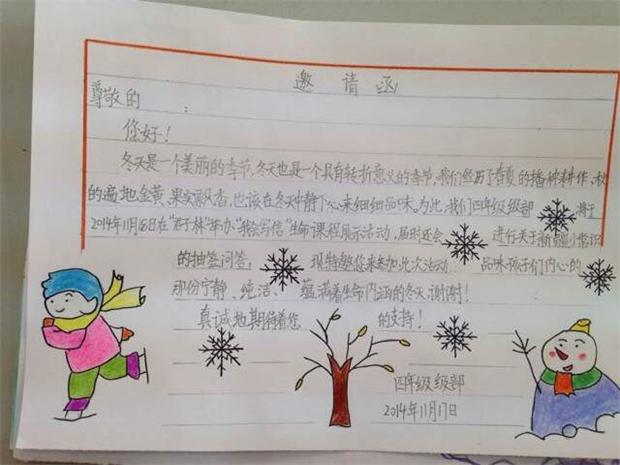 邀请函
尊敬的 :
您好!
冬天是一个美丽的季节,冬天也是一个具有转折意义的季节。我们经历了春夏的播种耕作,秋
的遍地金黄、果实飘香,也该在冬天中静下心来细细品味。为此,我们四年级级部 将于
2014年11月18日在"君子林"举办"我会写信"生命课程展示活动,届时还会 进行关于新疆小常识
的抽签问答, 现特邀您来参加此次活动 品味孩子们内心的
那份宁静、纯洁、 蕴满着生命内涵的冬天,谢谢!
真诚地期待着您 的支持!
四年级级部
2014年11月17日